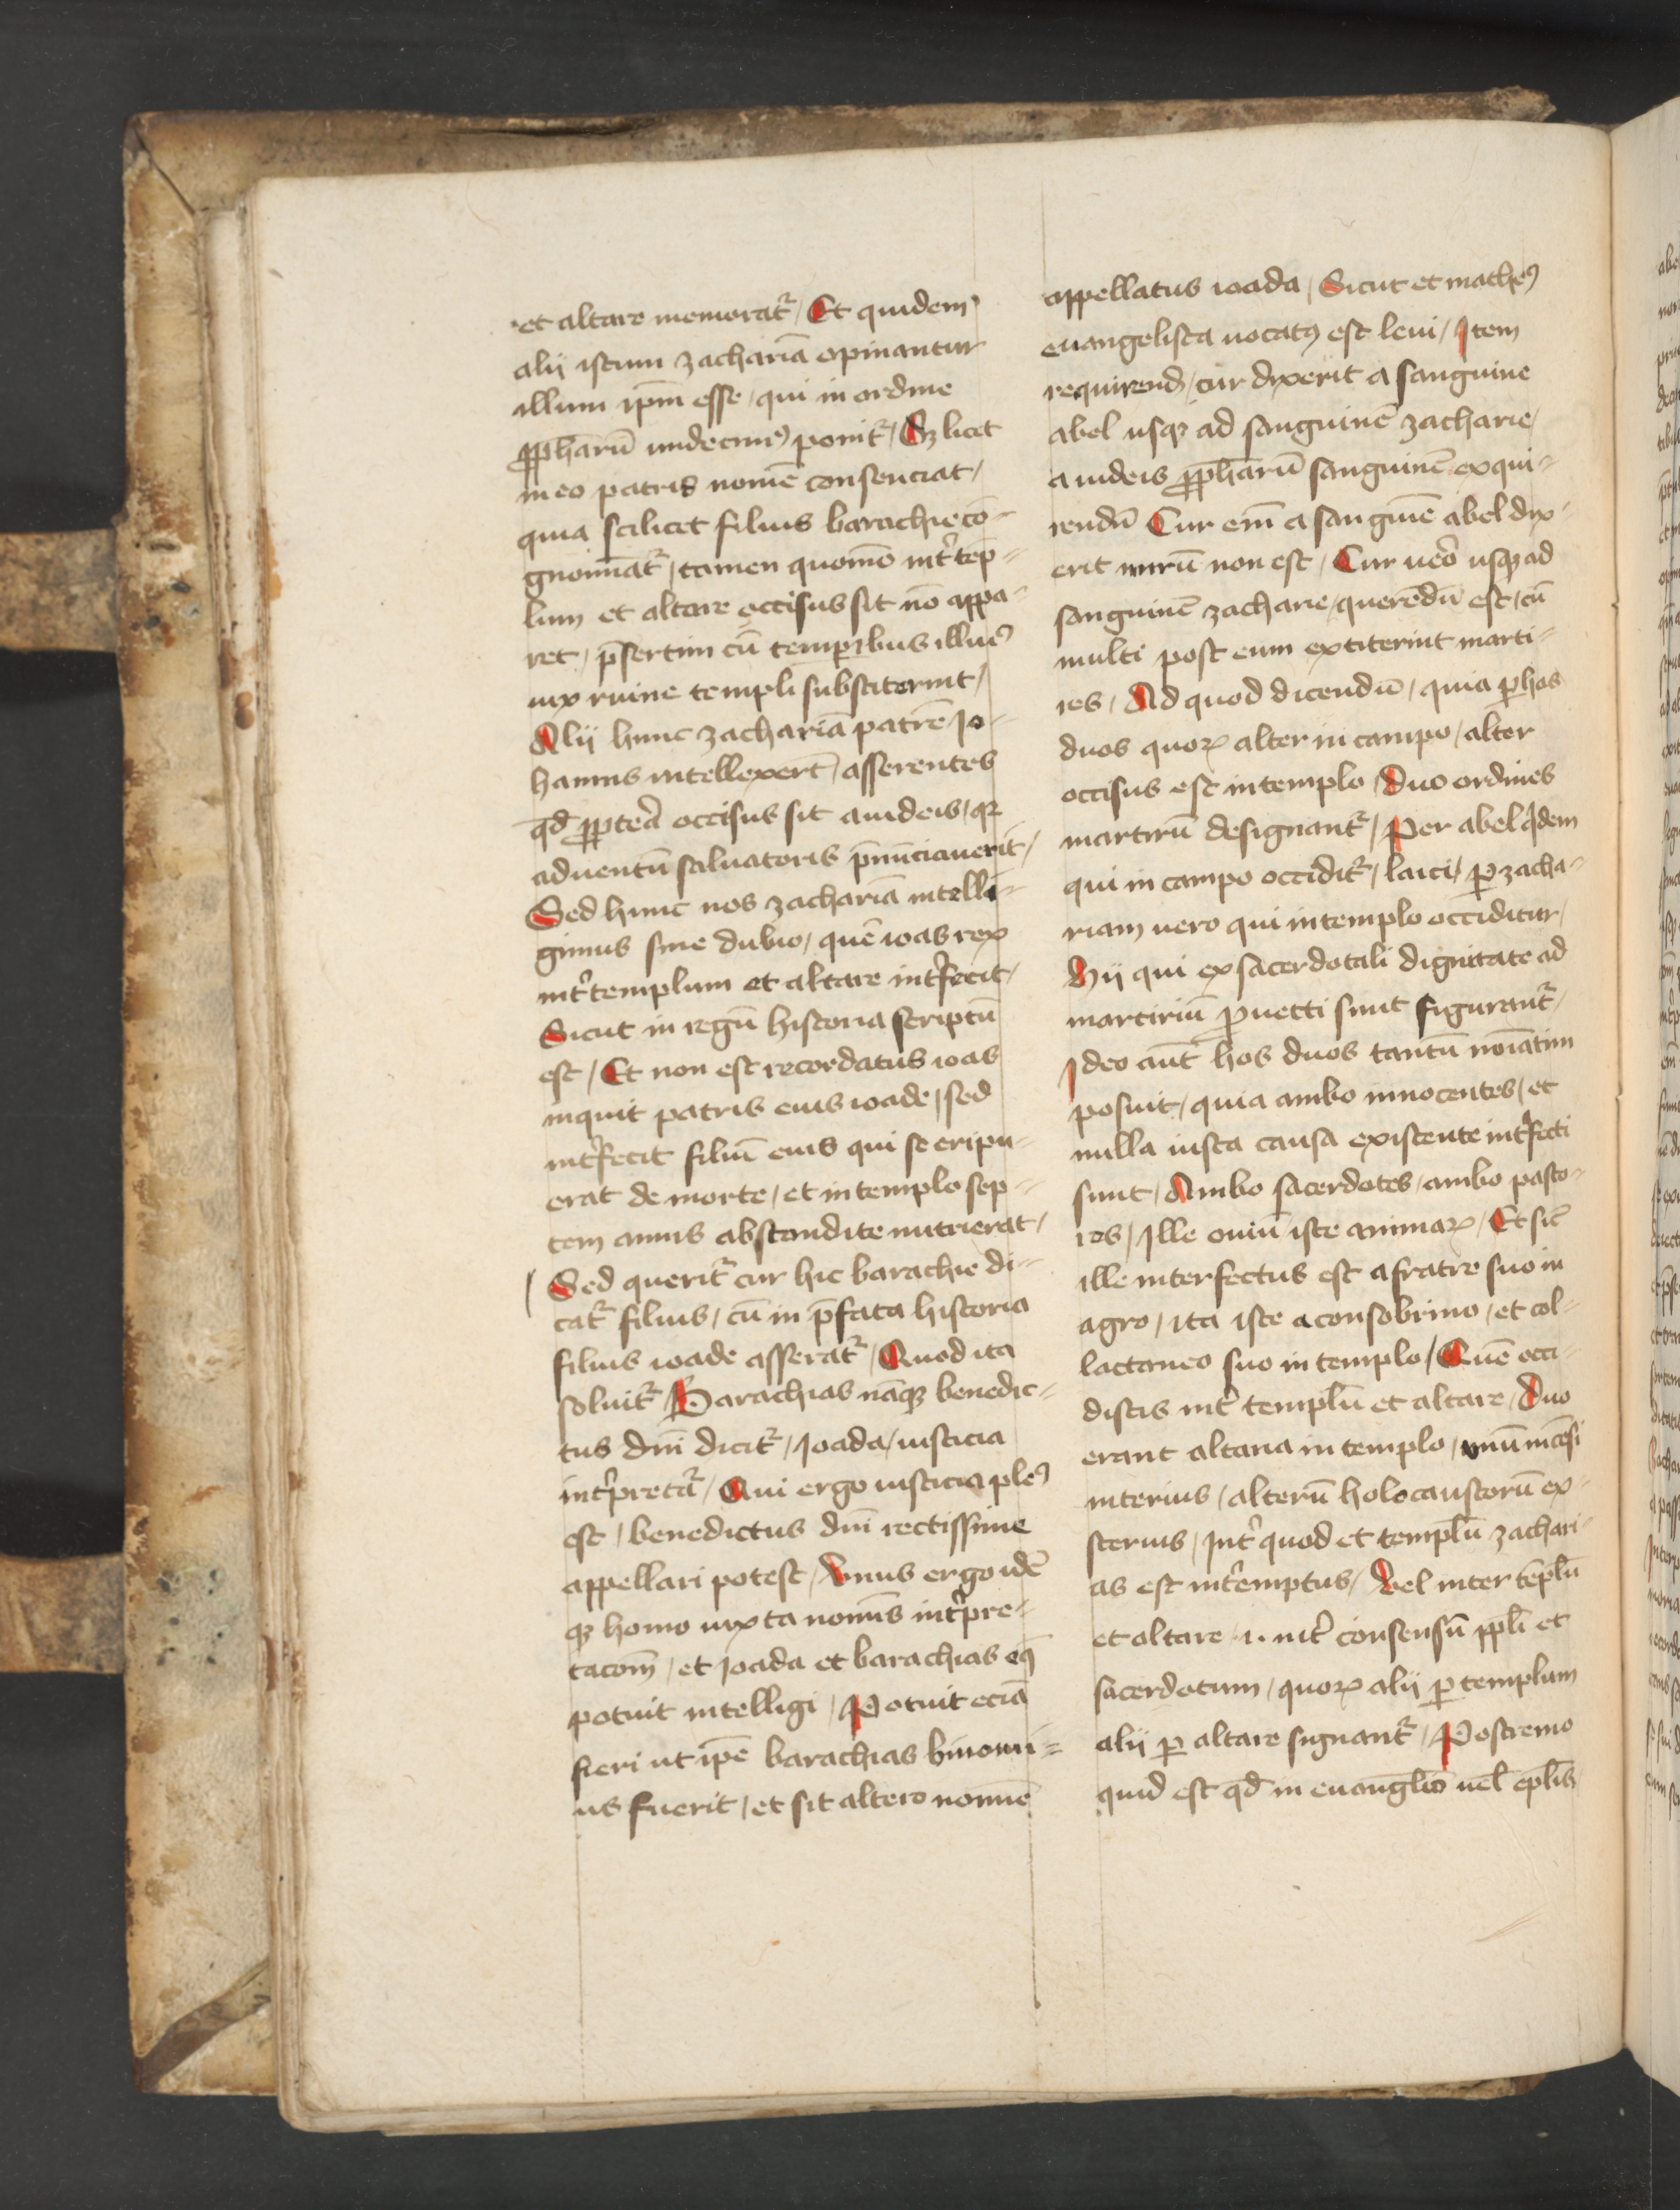 et altare memorat᷑ / Et quidem
alij istum zachariā opinantur
illum ip̄m esse / qui in ordine
ꝓph̄arū undecimꝰ ponit᷑ / Sꝫ licet
in eo patris nomē consenciat /
quia scilicet filius barachie co-
gnomīat᷑ / tamen quomō int͛ tēp=
lum et altare occisus sit nō appa-
ret / p̄sertim cū temporibus illiuꝰ
uix ruine templi substiterint /
Alij hunc zachariā patrē Jo-
hannis intellexert̄ / asserentes
qd̄ ꝓpteā occisus sit a iudeis / qꝛ
aduentū saluatoris p̄nūciauerit /
Sed hunc nos zachariā intelli-
gimus sine dubio / quē ioas rex
int͛ templum et altare int͛fecit /
Sicut in regū historia scriptū
est / Et non est recordatus ioas
inquit patris eius ioade / sed
int͛fecit filiū eius qui se eripu-
erat de morte / et in templo sep=
tem annis abscondite nutrierat /
Sed querit᷑ cur hic barachie di-
cat᷑ filius / cū in p̄fata historia
filius ioade asserat᷑ / Quod ita
soluit᷑ / Barachias nāqꝫ benedic=
tus dn̄i dicit᷑ / Joada / iusticia
int͛pretat᷑ / Qui ergo iusticia plēꝰ
est / benedictus dn̄i rectissime
appellari potest / Unus ergo idē
qꝫ homo iuxta nomīs int͛pre-
tacōm / et Joada et barachias
potuit intelligi / Potuit eciā
fieri ut ip̄e barachias binomi=
us fuerit / et sit altero nomīe
appellatus ioada / Sicut et matheꝰ
euangelista uocatꝰ est leui / Item
requirend / cur dixerit a sanguine
abel usqꝫ ad sanguinē zacharie /
a iudeis ꝓph̄arū sanguinē exqui=
rendū Cur em̄ a sanguīe abel dix-
erit mirū non est / Cur ueͦ usqꝫ ad
sanguinē zacharie / querēdū est / cū
multi post eum extiterint marti=
res / Ad quod dicendū / quia ꝑ hos
duos quoꝝ alter in campo / alter
occisus est in templo / Duo ordines
martirū designant᷑ / Per abel qͥdem
qui in campo occidit᷑ / laici / ꝑ zacha-
riam uero qui in templo occiditur /
Hij qui ex sacerdotali dignitate ad
martiriū ꝓuecti sunt figurant᷑ /
Ideo aūt hos duos tantū noīatim
posuit / quia ambo innocentes / et
nulla iusta causa existente int͛fecti
sunt / Ambo sacerdotes / ambo pasto-
res / Ille ouiū iste animaꝝ / Et sic̄
ille interfectus est a fratre suo in
agro / ita iste a consobrino / et col-
lactaneo suo in templo / Quē occi-
distis int͛ templū et altare / Duo
erant altaria in templo / unū incēsi
interius / alterū holocaustorū ex-
sterius / Int͛ quod et templū zachari-
as est int͛emptus / Uel inter tēplū
et altare .i. int͛ consensū pp̄li et
sacerdotum / quoꝝ alij ꝑ templum
alij ꝑ altare signant᷑ / Postremo
quid est qd̄ in euangl̄io uel ep̄lis